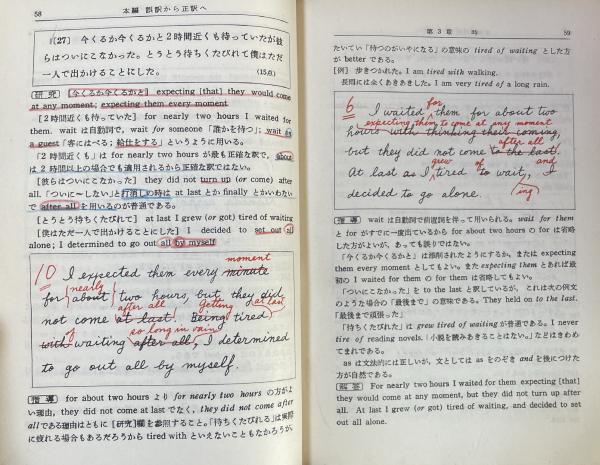 58
本編 誤訳から正訳へ
〔27〕 今くるか今くるかと2時間近くも待っていたが彼
らはついにこなかった。とうとう待ちくたびれて僕はただ
一人で出かけることにした。
(15点)
研究 〔今くるか今くるかと〕 expecting [that] they would come
at any moment; expecting them every moment
〔2時間近くも待っていた〕 for nearly two hours I waited for
them. wait は自動詞で, wait for someone「誰かを待つ」; wait on
a guest「客にはべる; 給仕をする」というように用いる。
「2時間近くも」は for nearly two hours が最も正確な訳で, about
は2時間以上の場合でも適用されるから正確な訳ではない。
〔彼らはついにこなかった〕 they did not turn up (or come) after
all.「ついに〜しない」と打消しの時は at last とか finally とかいわない
で after all を用いるのが普通である。
〔とうとう待ちくたびれて〕 at last I grew (or got) tired of waiting
〔僕はただ一人で出かけることにした〕 I decided to set out all
alone; I determined to go out all by myself
10
moment
I expected them every minute
nearly
for about two hours, but they did
after all getting at last
not come at last. Being tired
of so long in vain
with waiting after all, I determined
to go out all by myself.
指導 for about two hours より for nearly two hours の方がよ
い理由, they did not come at last でなく, they did not come after
all である理由はともに〔研究〕欄を参照すること。「待ちくたびれる」は実際
に疲れる場合もあるだろうから tired with といえないこともなかろうが,
第3章 時
59
たいてい「待つのがいやになる」の意味の tired of waiting とした方
が better である。
〔例〕 歩きつかれた。I am tired with walking.
長雨には全くあきあきした。I am very tired of a long rain.
6
for
I waited them for about two
expecting them to come at any moment
hours with thinking their coming,
after all
but they did not come to the last.
grew of and
At last as I tired to wait, I
ing
decided to go alone.
指導 wait は自動詞で前置詞を伴って用いられる。wait for them
と for がすでに一度出ているから for about two hours の for は省略
した方がよいが, あっても誤りではない。
「今くるか今くるか」とは添削されたようにするか, または expecting
them every moment としてもよい。また expecting them とあれば最
初の I waited for them の for them は省略してもよい。
「ついにこなかった」を to the last と訳しているが, これは次の例文
のような場合の「最後まで」の意味である。They held on to the last.
「最後まで頑張った」
「待ちくたびれた」は grew tired of waiting が普通である。I never
tire of reading novels.「小説を読みあきることはない。」などはきわめ
てまれである。
as は文法的には正しいが, 文としては as をのぞき and を後につけた
方が自然である。
解答 For nearly two hours I waited for them expecting [that]
they would come at any moment, but they did not turn up after
all. At last I grew (or got) tired of waiting, and decided to set
out all alone.